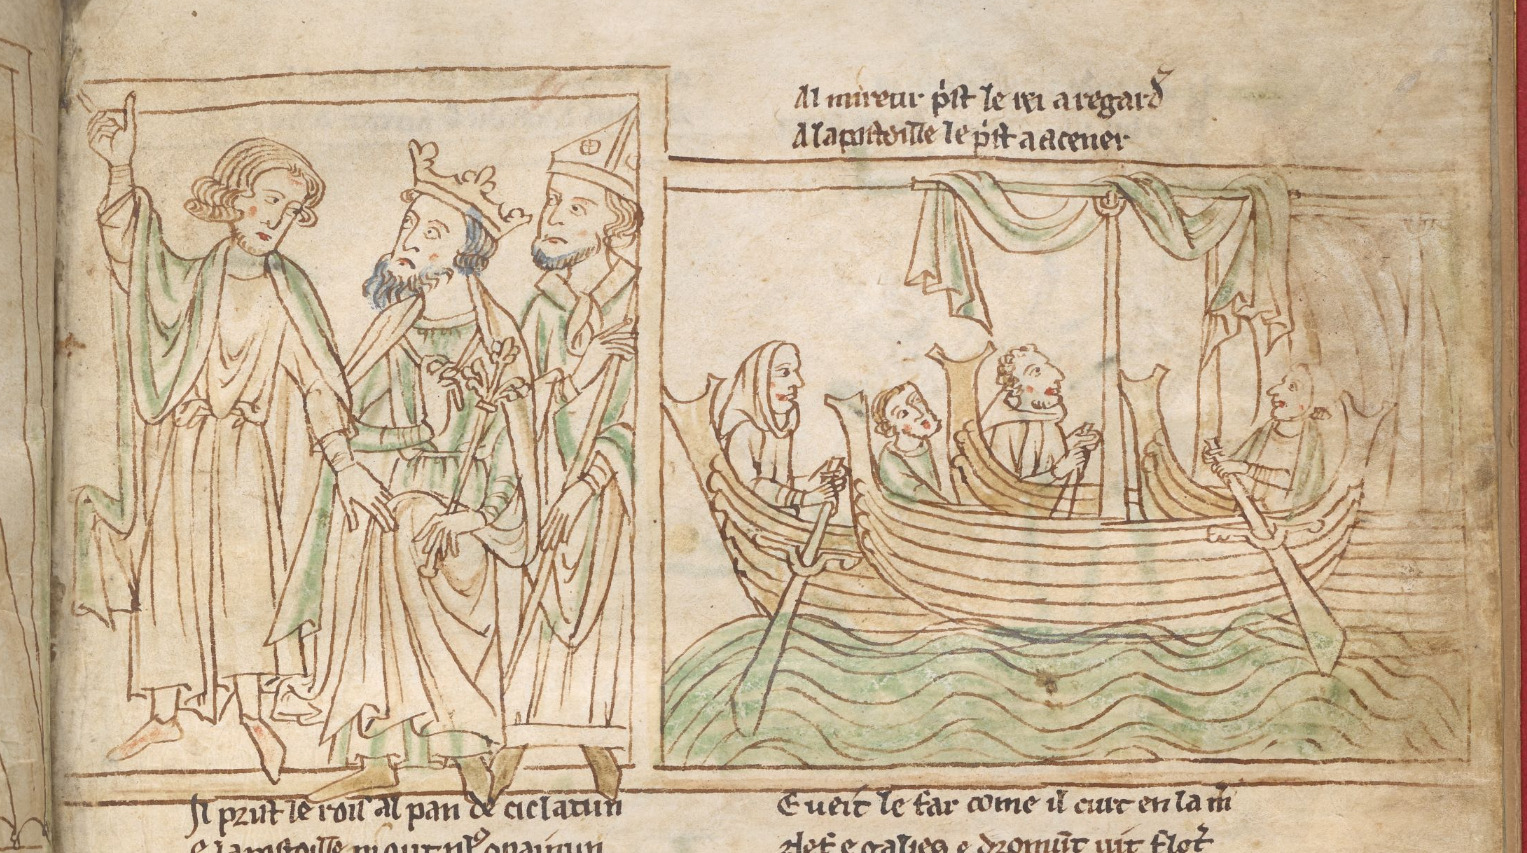 Al mireur p'st le rei a regard'
A lapostoille le p'st a acener
Il prist le roi al pan de ciclatun
E lapostoille
E veit le far come il curt en la m'
Nef e galies e dromu't uit flot'